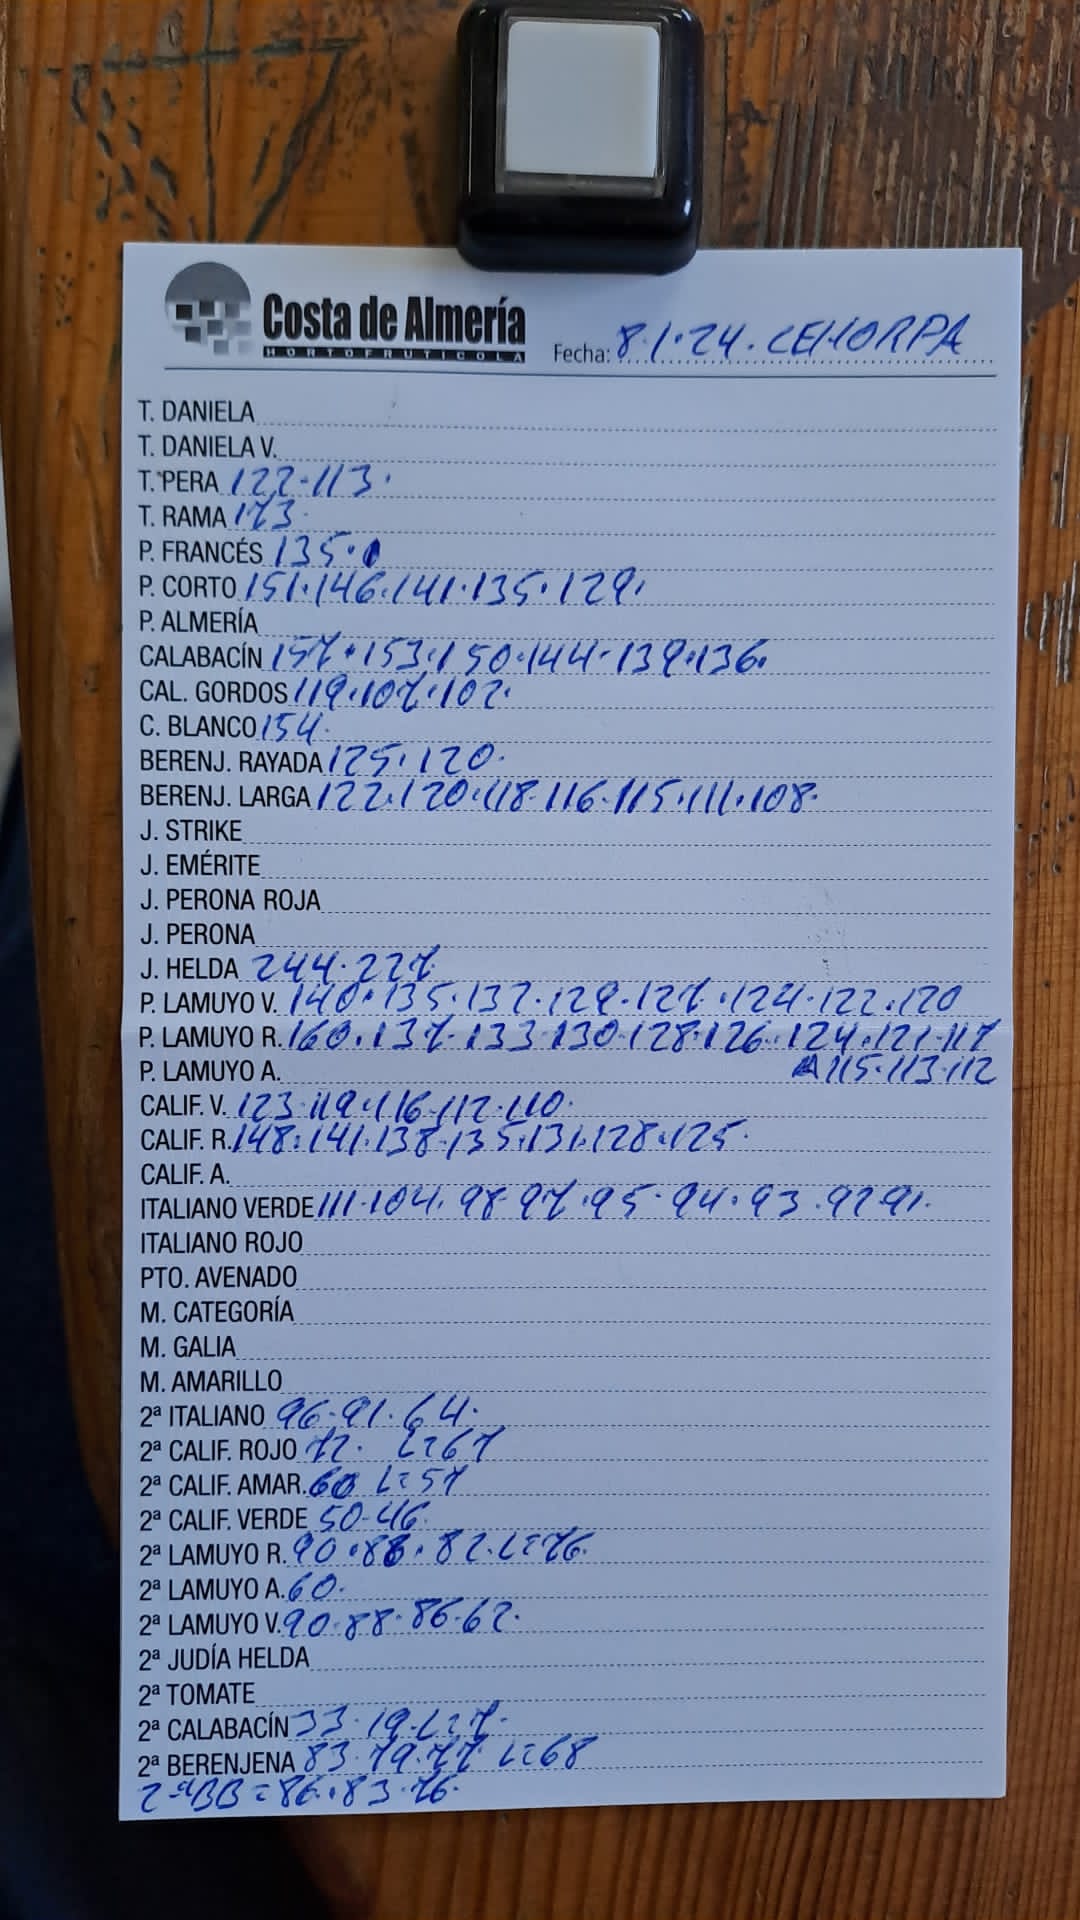 Costa de Almería
HORTOFRUTICOLA
Fecha: 8.1.24. CEHORPA
T. DANIELA
T. DANIELA V.
T. PERA 122.113.
T. RAMA 173.
P. FRANCÉS 135.
P. CORTO 151.146.141.135.129.
P. ALMERÍA
CALABACÍN 157.153.150.144.139.136.
CAL. GORDOS 119.107.102.
C. BLANCO 154.
BERENJ. RAYADA 125.120.
BERENJ. LARGA 122.120.118.116.115.111.108.
J. STRIKE
J. EMÉRITE
J. PERONA ROJA
J. PERONA
J. HELDA 244.227
P. LAMUYO V. 140.135.132.129.127.124.122.120
P. LAMUYO R. 160.137.133.130.128.126.124.121.117
P. LAMUYO A. 115.113.112
CALIF. V. 123.119.116.112.110.
CALIF. R. 148.141.138.135.131.128.125.
CALIF. A.
ITALIANO VERDE 111.104.98.97.95.94.93.92.91.
ITALIANO ROJO
PTO. AVENADO
M. CATEGORÍA
M. GALIA
M. AMARILLO
2ª ITALIANO 96.91.64.
2ª CALIF. ROJO 72. L=67
2ª CALIF. AMAR. 60 L=57
2ª CALIF. VERDE 50.46.
2ª LAMUYO R. 90.88.82.L=76.
2ª LAMUYO A. 60.
2ª LAMUYO V. 90.88.86.62.
2ª JUDÍA HELDA
2ª TOMATE
2ª CALABACÍN 33.19.L=7.
2ª BERENJENA 83.79.77. L=68
2ªBB=86.83.76.